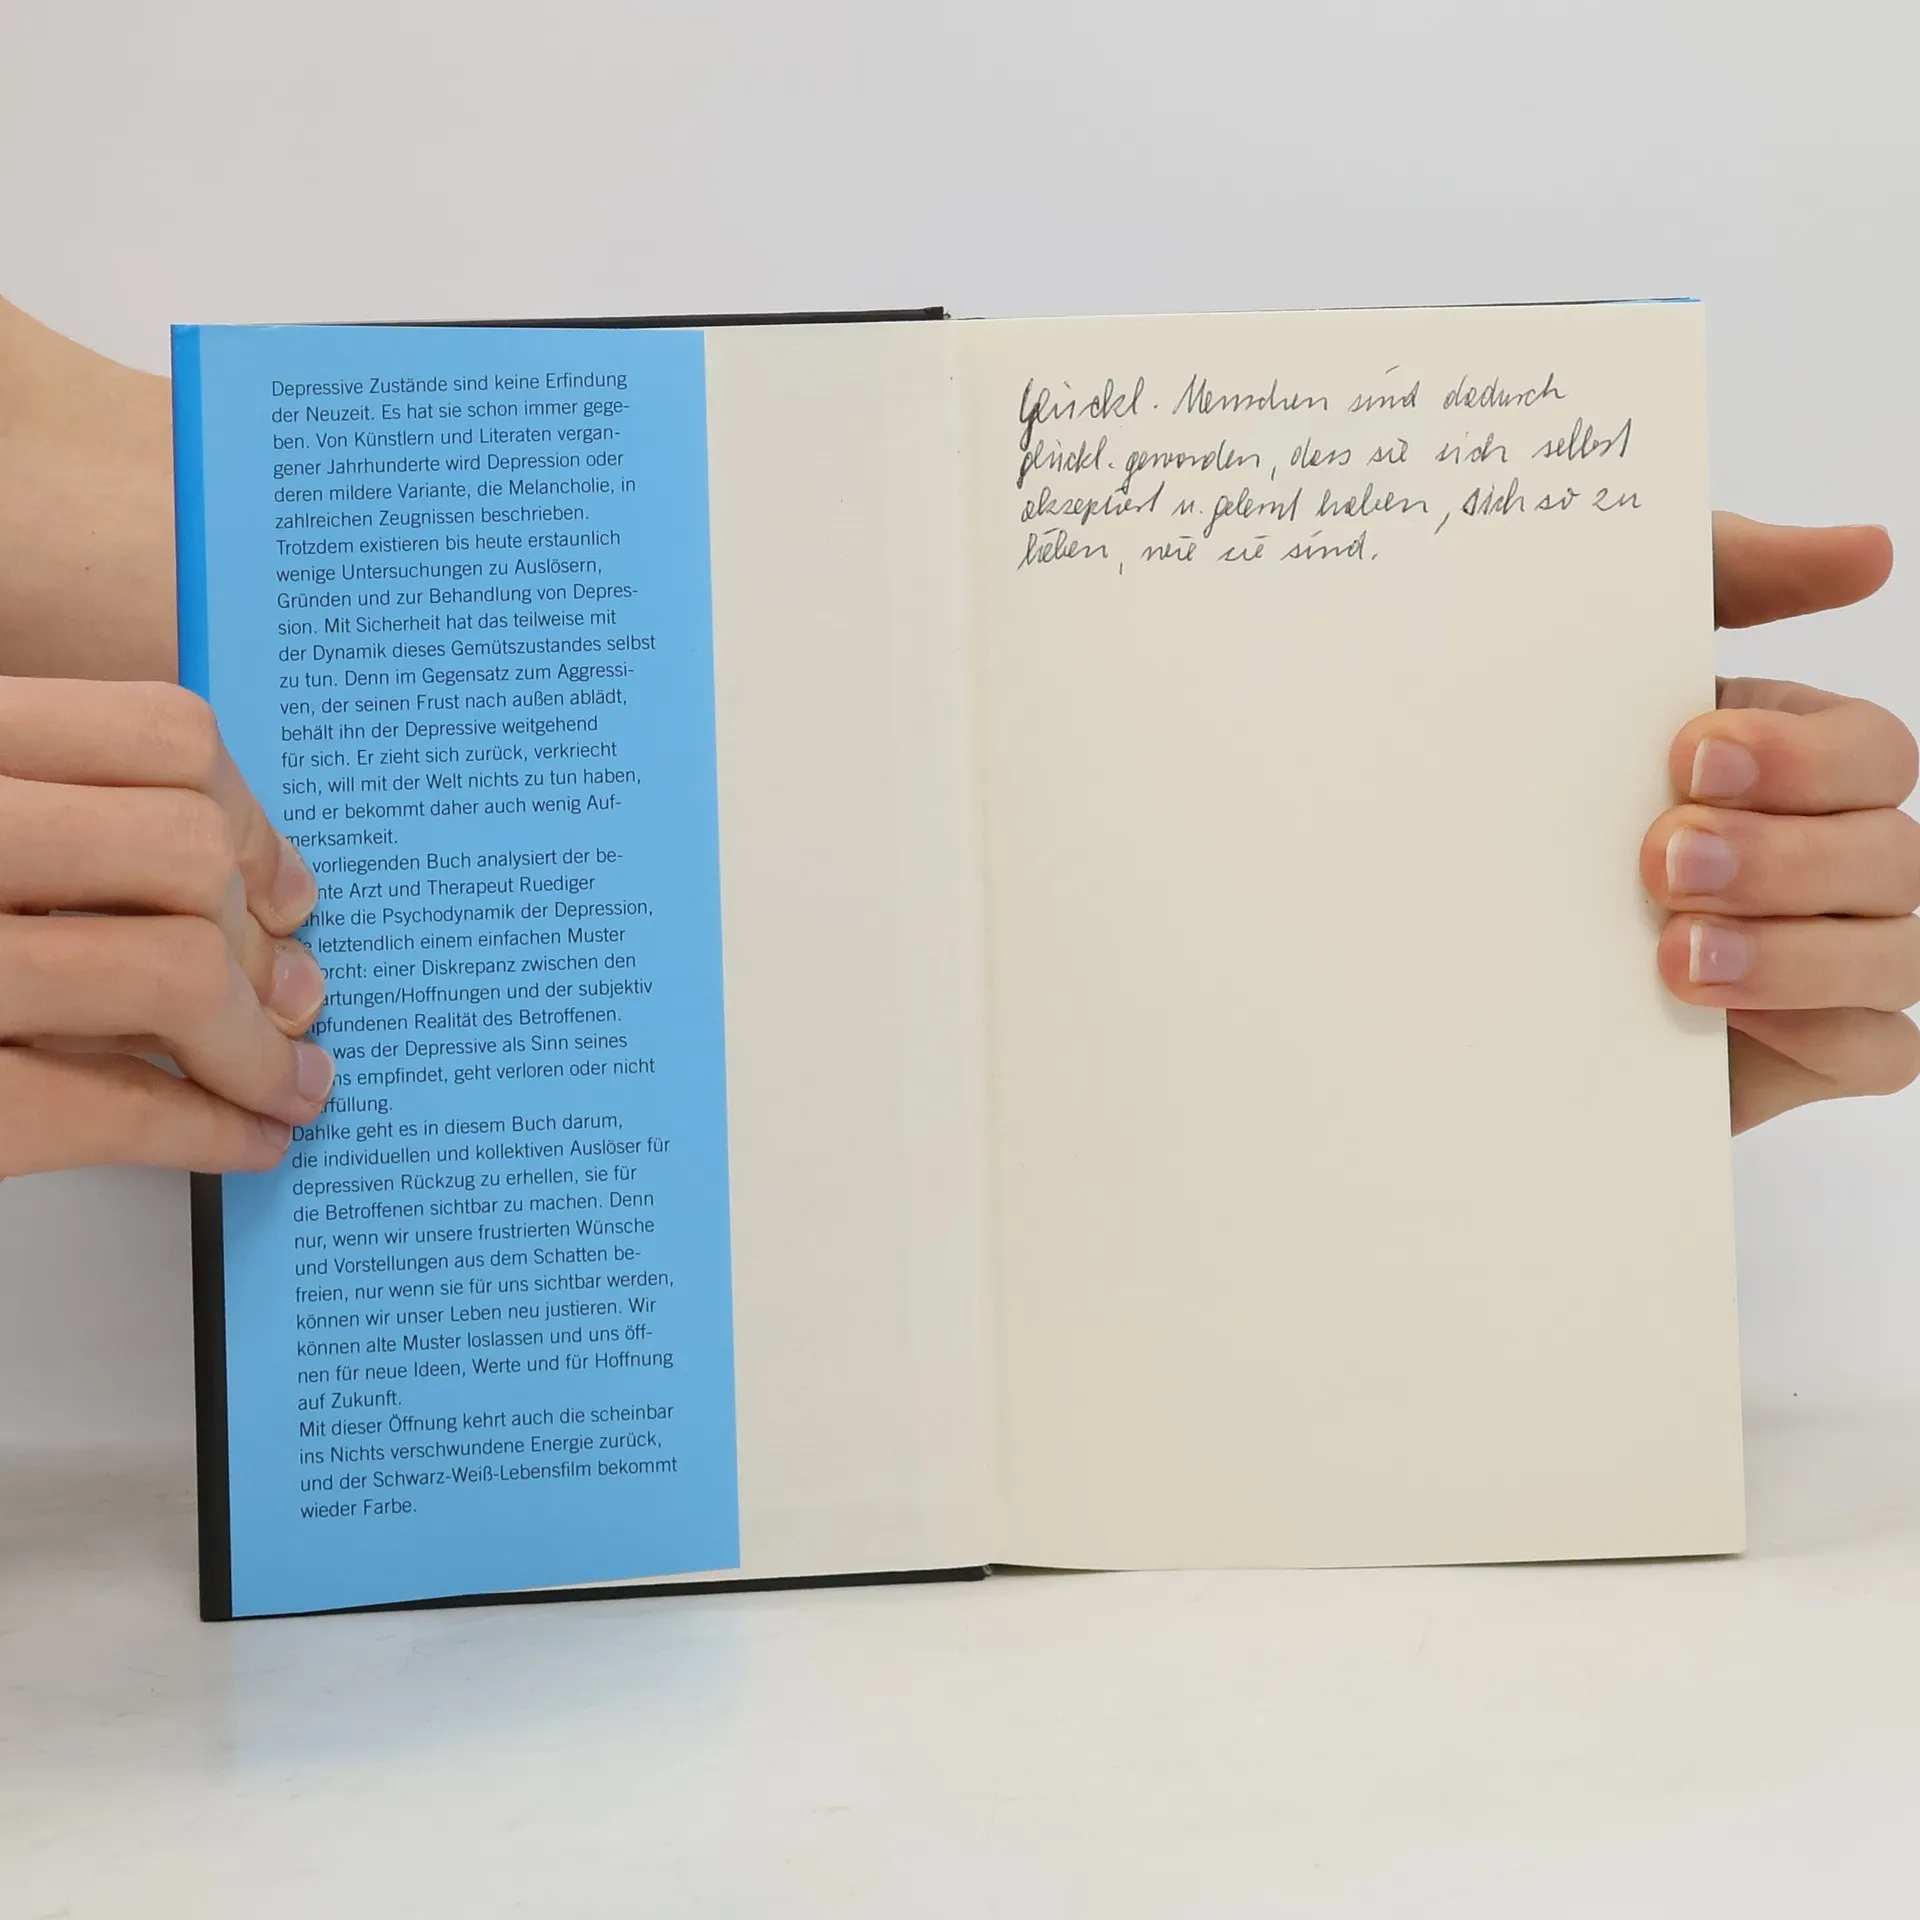 Depressive Zustände sind keine Erfindung
der Neuzeit. Es hat sie schon immer gege-
ben. Von Künstlern und Literaten vergan-
gener Jahrhunderte wird Depression oder
deren mildere Variante, die Melancholie, in
zahlreichen Zeugnissen beschrieben.
Trotzdem existieren bis heute erstaunlich
wenige Untersuchungen zu Auslösern,
Gründen und zur Behandlung von Depres-
sion. Mit Sicherheit hat das teilweise mit
der Dynamik dieses Gemütszustandes selbst
zu tun. Denn im Gegensatz zum Aggressi-
ven, der seinen Frust nach außen ablädt,
behält ihn der Depressive weitgehend
für sich. Er zieht sich zurück, verkriecht
sich, will mit der Welt nichts zu tun haben,
und er bekommt daher auch wenig Auf-
merksamkeit.
vorliegenden Buch analysiert der be-
nte Arzt und Therapeut Ruediger
hlke die Psychodynamik der Depression,
letztendlich einem einfachen Muster
orcht: einer Diskrepanz zwischen den
artungen/Hoffnungen und der subjektiv
pfundenen Realität des Betroffenen.
was der Depressive als Sinn seines
ns empfindet, geht verloren oder nicht
rfüllung.
Dahlke geht es in diesem Buch darum,
die individuellen und kollektiven Auslöser für
depressiven Rückzug zu erhellen, sie für
die Betroffenen sichtbar zu machen. Denn
nur, wenn wir unsere frustrierten Wünsche
und Vorstellungen aus dem Schatten be-
freien, nur wenn sie für uns sichtbar werden,
können wir unser Leben neu justieren. Wir
können alte Muster loslassen und uns öff-
nen für neue Ideen, Werte und für Hoffnung
auf Zukunft.
Mit dieser Öffnung kehrt auch die scheinbar
ins Nichts verschwundene Energie zurück,
und der Schwarz-Weiß-Lebensfilm bekommt
wieder Farbe.
Glückl. Menschen sind dadurch
glückl. geworden, dass sie sich selbst
akzeptiert u. gelernt haben, sich so zu
lieben, wie sie sind.